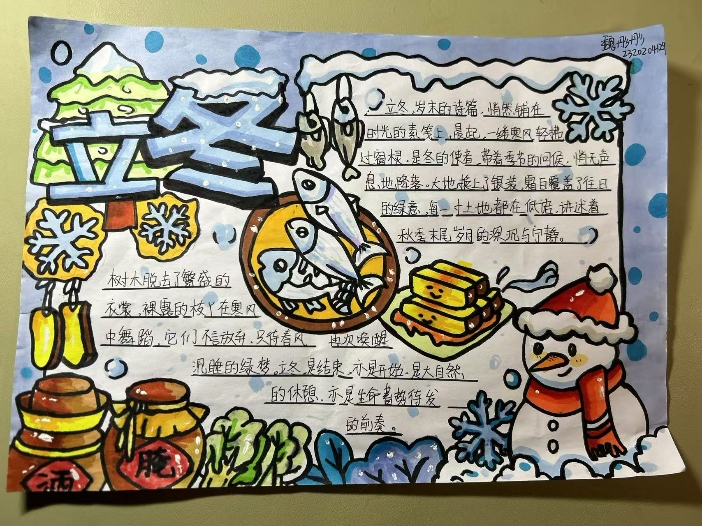 魏彤彤
2320204129
立冬
立冬,岁末的诗篇,悄然铺在
时光的素笺上,晨起,一缕寒风轻拂
过窗棂,是冬的使者,带着季节的问候,悄无声
息地降装。大地披上了银装,霜白覆盖了往日
的绿意,每一寸土地都在低语,讲述着
秋季末尾岁月的深沉与宁静。
树木脱去了繁盛的
衣裳,裸露的枝丫在寒风
中舞蹈,它们不信放弃,只待春风再次唤醒
沉睡的绿梦。立冬是结束,亦是开始,是大自然
的休憩,亦是生命蓄势待发
的前奏。
酒
腌